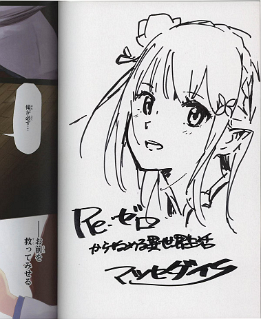 俺が必ず…
お前を
救ってみせる
Re:ゼロ
から始める異世界生活
マツセダイチ